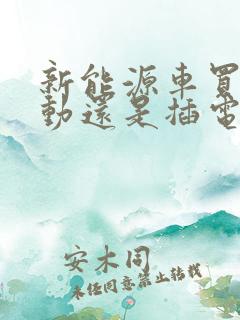 新能源車買
動還是插電
安木同
未经同意禁止转载